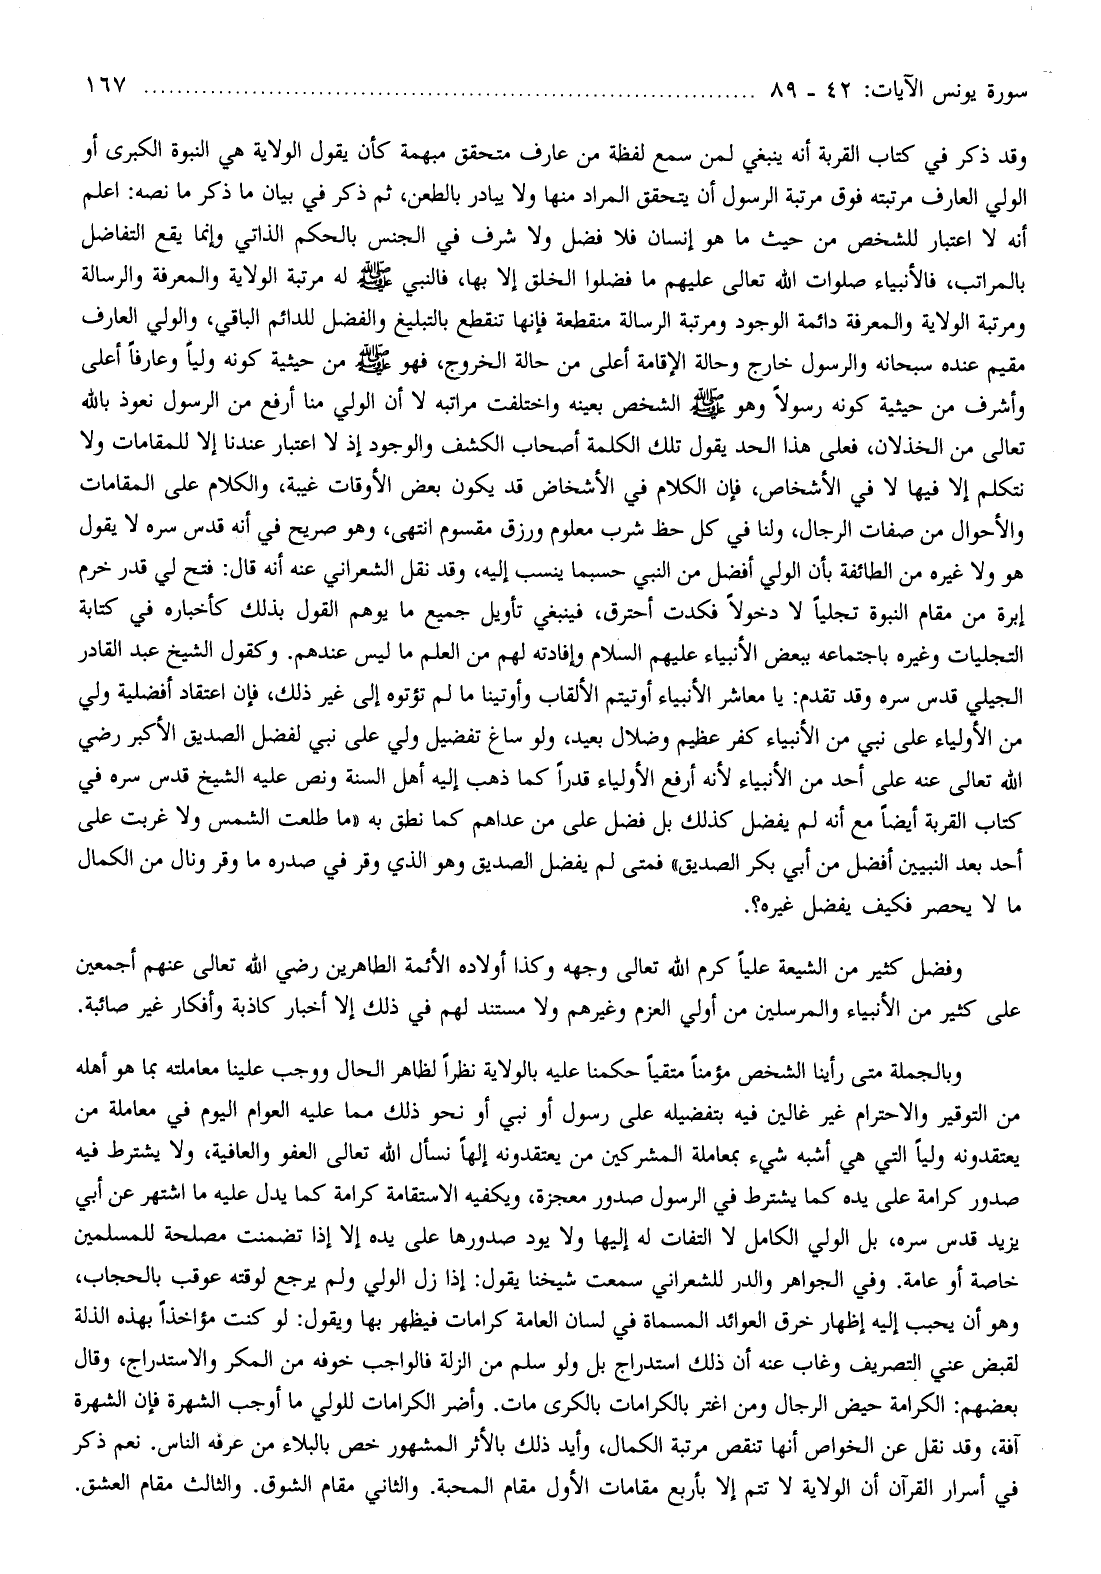 سورة يونس الآيات: ٤٢ - ٨٩ ........................................................................... ١٦٧
وقد ذكر في كتاب القربة أنه ينبغي لمن سمع لفظة من عارف متحقق مبهمة كأن يقول الولاية هي النبوة الكبرى أو
الولي العارف مرتبته فوق مرتبة الرسول أن يتحقق المراد منها ولا يبادر بالطعن، ثم ذكر في بيان ما ذكر ما نصه: اعلم
أنه لا اعتبار للشخص من حيث ما هو إنسان فلا فضل ولا شرف في الجنس بالحكم الذاتي وإنما يقع التفاضل
بالمراتب، فالأنبياء صلوات الله تعالى عليهم ما فضلوا الخلق إلا بها، فالنبي ﷺ له مرتبة الولاية والمعرفة والرسالة
ومرتبة الولاية والمعرفة دائمة الوجود ومرتبة الرسالة منقطعة فإنها تنقطع بالتبليغ والفضل للدائم الباقي، والولي العارف
مقيم عنده سبحانه والرسول خارج وحالة الإقامة أعلى من حالة الخروج، فهو ﷺ من حيثية كونه ولياً وعارفاً أعلى
وأشرف من حيثية كونه رسولاً وهو ﷺ الشخص بعينه واختلفت مراتبه لا أن الولي منا أرفع من الرسول نعوذ بالله
تعالى من الخذلان، فعلى هذا الحد يقول تلك الكلمة أصحاب الكشف والوجود إذ لا اعتبار عندنا إلا للمقامات ولا
نتكلم إلا فيها لا في الأشخاص، فإن الكلام في الأشخاض قد يكون بعض الأوقات غيبة، والكلام على المقامات
والأحوال من صفات الرجال، ولنا في كل حظ شرب معلوم ورزق مقسوم انتهى، وهو صريح في أنه قدس سره لا يقول
هو ولا غيره من الطائفة بأن الولي أفضل من النبي حسبما ينسب إليه، وقد نقل الشعراني عنه أنه قال: فتح لي قدر خرم
إبرة من مقام النبوة تجلياً لا دخولاً فكدت أحترق، فينبغي تأويل جميع ما يوهم القول بذلك كأخباره في كتابة
التجليات وغيره باجتماعه ببعض الأنبياء عليهم السلام وإفادته لهم من العلم ما ليس عندهم. وكقول الشيخ عبد القادر
الجيلي قدس سره وقد تقدم: يا معاشر الأنبياء أوتيتم الألقاب وأوتينا ما لم تؤتوه إلى غير ذلك، فإن اعتقاد أفضلية ولي
من الأولياء على نبي من الأنبياء كفر عظيم وضلال بعيد، ولو ساغ تفضيل ولي على نبي لفضل الصديق الأكبر رضي
الله تعالى عنه على أحد من الأنبياء لأنه أرفع الأولياء قدراً كما ذهب إليه أهل السنة ونص عليه الشيخ قدس سره في
كتاب القربة أيضاً مع أنه لم يفضل كذلك بل فضل على من عداهم كما نطق به «ما طلعت الشمس ولا غربت على
أحد بعد النبيين أفضل من أبي بكر الصديق» فمتى لم يفضل الصديق وهو الذي وقر في صدره ما وقر ونال من الكمال
ما لا يحصر فكيف يفضل غيره؟.
وفضل كثير من الشيعة علياً كرم الله تعالى وجهه وكذا أولاده الأئمة الطاهرين رضي الله تعالى عنهم أجمعين
على كثير من الأنبياء والمرسلين من أولي العزم وغيرهم ولا مستند لهم في ذلك إلا أخبار كاذبة وأفكار غير صائبة.
وبالجملة متى رأينا الشخص مؤمناً متقياً حكمنا عليه بالولاية نظراً لظاهر الحال ووجب علينا معاملته بما هو أهله
من التوقير والاحترام غير غالين فيه بتفضيله على رسول أو نبي أو نحو ذلك مما عليه العوام اليوم في معاملة من
يعتقدونه ولياً التي هي أشبه شيء بمعاملة المشركين من يعتقدونه إلهاً نسأل الله تعالى العفو والعافية، ولا يشترط فيه
صدور كرامة على يده كما يشترط في الرسول صدور معجزة، ويكفيه الاستقامة كرامة كما يدل عليه ما اشتهر عن أبي
يزيد قدس سره، بل الولي الكامل لا التفات له إليها ولا يود صدورها على يده إلا إذا تضمنت مصلحة للمسلمين
خاصة أو عامة. وفي الجواهر والدر للشعراني سمعت شيخنا يقول: إذا زل الولي ولم يرجع لوقته عوقب بالحجاب،
وهو أن يحبب إليه إظهار خرق العوائد المسماة في لسان العامة كرامات فيظهر بها ويقول: لو كنت مؤاخذاً بهذه الذلة
لقبض عني التصريف وغاب عنه أن ذلك استدراج بل ولو سلم من الزلة فالواجب خوفه من المكر والاستدراج، وقال
بعضهم: الكرامة حيض الرجال ومن اغتر بالكرامات بالكرى مات. وأضر الكرامات للولي ما أوجب الشهرة فإن الشهرة
آفة، وقد نقل عن الخواص أنها تنقص مرتبة الكمال، وأيد ذلك بالأثر المشهور خص بالبلاء من عرفه الناس. نعم ذكر
في أسرار القرآن أن الولاية لا تتم إلا بأربع مقامات الأول مقام المحبة. والثاني مقام الشوق. والثالث مقام العشق.